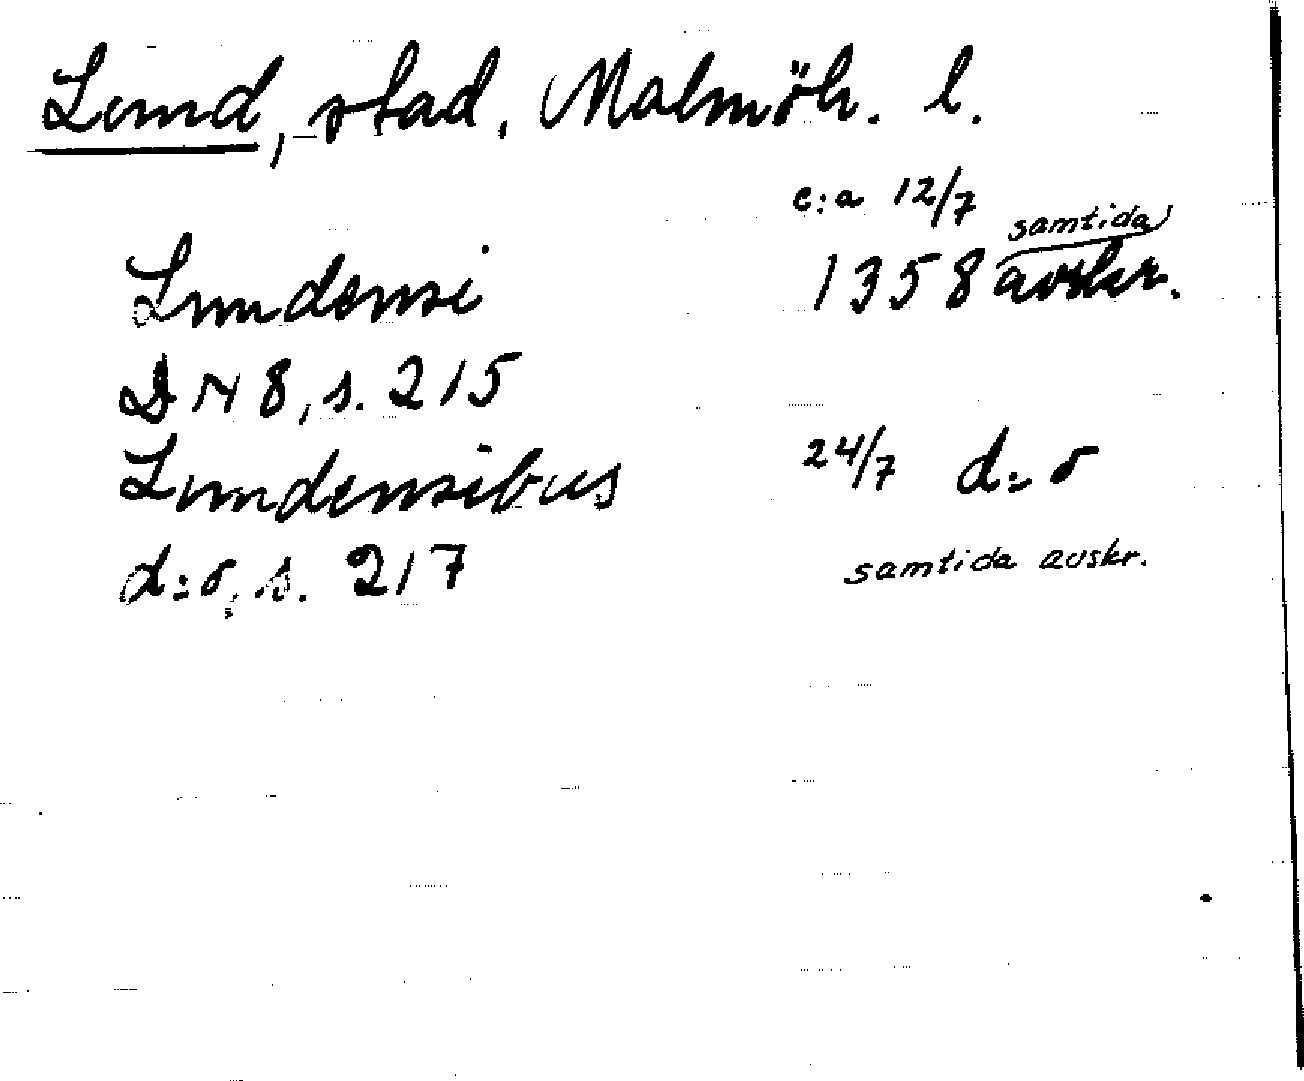 Lund, stad, Malmöh. l.
c:a 12/7
Lundensi 1358 samtida avskr.
DN 8, s. 215
Lundensibus 24/7 d:o
d:o, s. 217 samtida avskr.